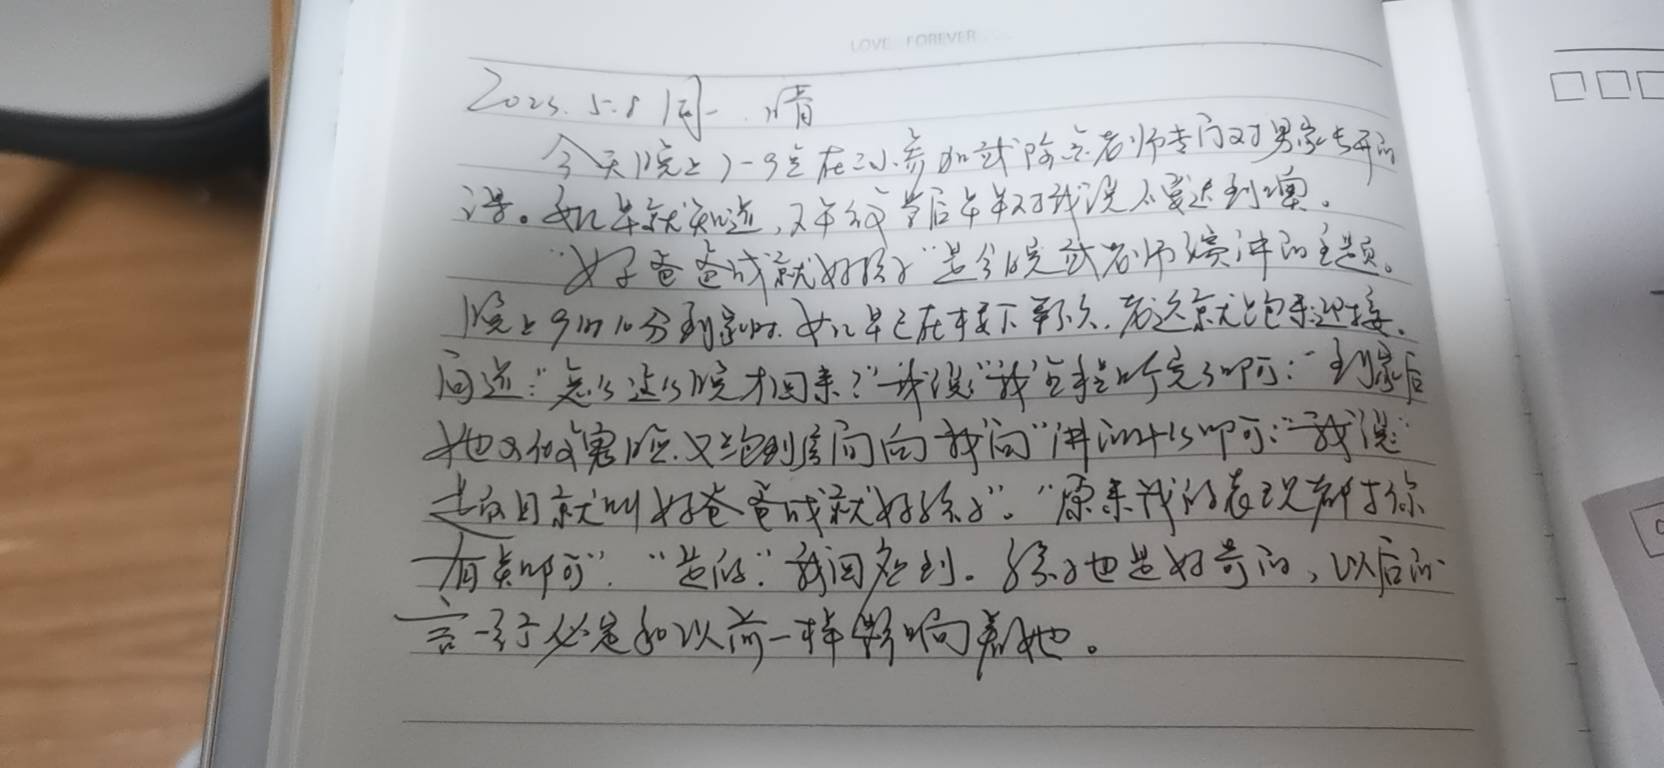 LOVE FOREVER
2023.5.8 周一 晴
今天晚上7-9点在二小参加武陈宏老师专门对男家长开的
课。女儿早就知道,
“好爸爸成就好孩子”是今晚武老师演讲的主题。
晚上9点10分到家时,女儿早已在楼下等久,老远就跑来迎接,
问道:“怎么这么晚才回来?”我说“我全程听完了啊可:”到家后
她又做鬼脸,又跑到房间向我问“讲的什么啊可:”我说:
题目就叫好爸爸成就好孩子”。“原来我的表现都与你
有关啊可”.“是的.”我回答到。孩子也是好奇的,以后的
言行必定和以前一样影响着她。